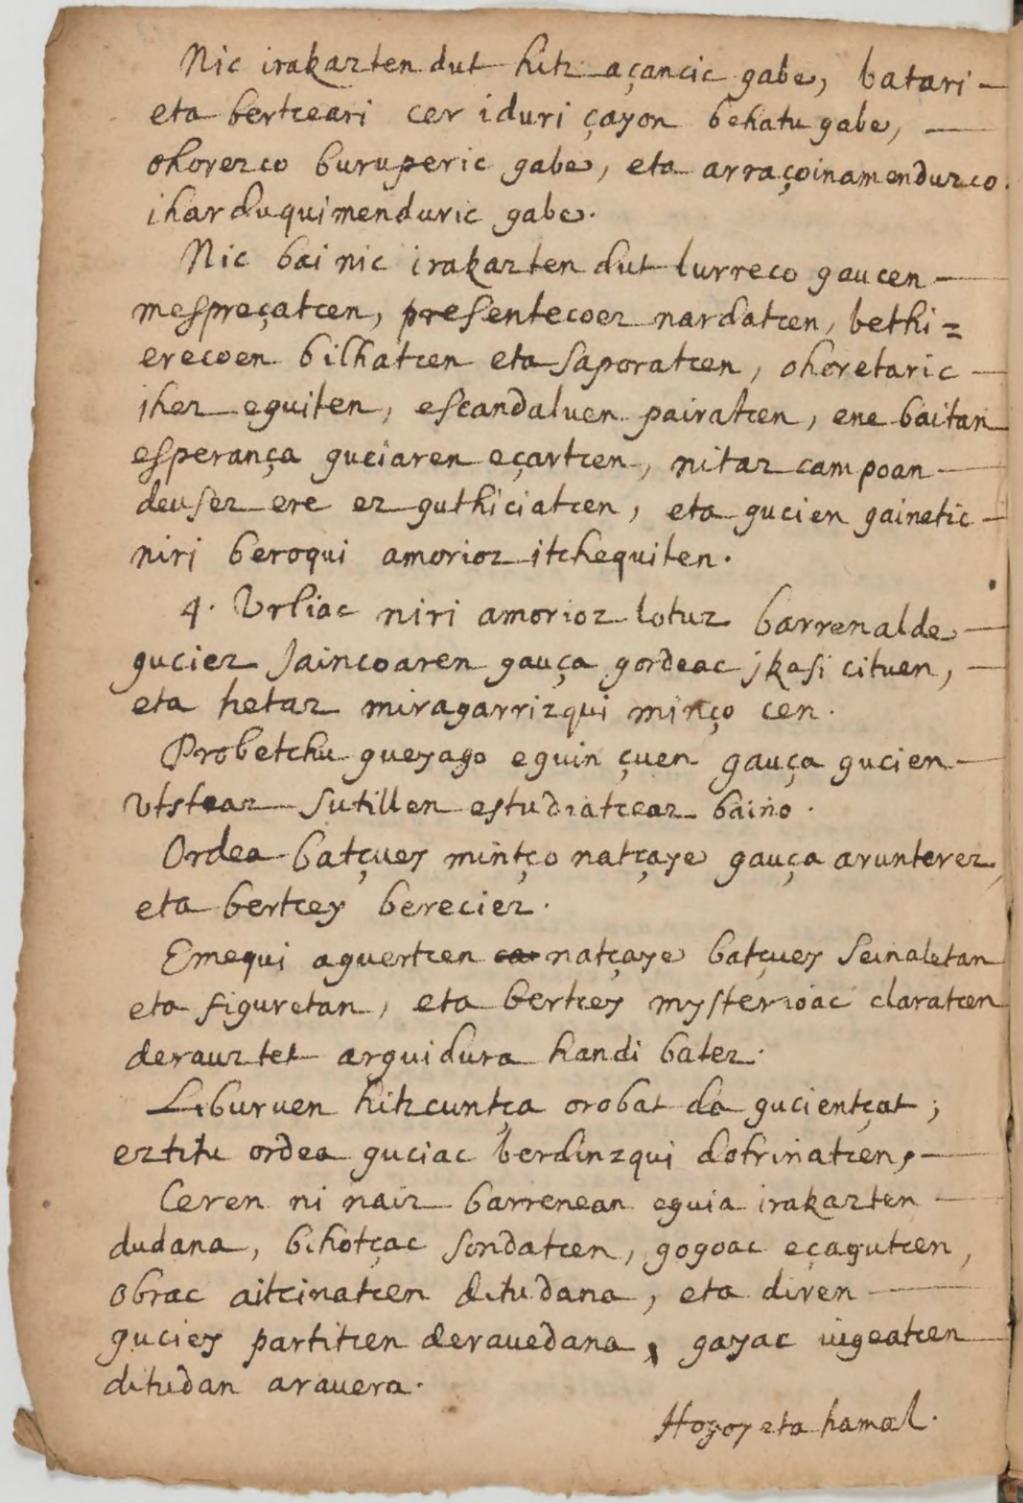 Nic irakazten dut hitz açancic gabe, batari —
eta bertceari cer iduri çayon behatu gabe, —
ohorezco buruperic gabe, eta arraçoinamenduzco
iharduquimenduric gabe.
Nic bai nic irakazten dut lurreco gaucen —
mespreçatcen, presentecoez nardatcen, bethi=
erecoen bilhatcen eta saporatcen, ohoretaric —
ihez eguiten, escandaluen pairatcen, ene baitan
esperança guciaren eçartcen, nitaz campoan —
deusez ere ez guthiciatcen, eta gucien gainetic —
niri beroqui amorioz itchequiten.
4. Urliac niri amorioz lotuz barrenalde —
guciez Jaincoaren gauça gordeac jkasi cituen, —
eta hetaz miragarrizqui minço cen.
Probetchu gueyago eguin çuen gauça gucien —
utsteaz sutillen estudiatceaz baino.
Ordea batçuey mintço natçaye gauça arunterez,
eta bertcey bereciez.
Emequi aguertcen natçaye batçuey seinaletan
eta figuretan, eta bertcey mysterioac claratcen
derauztet arguidura handi batez.
Liburuen hitzcuntça orobat da gucientçat;
eztitu ordea guciac berdinzqui dotrinatcen, —
Ceren ni naiz barrenean eguia irakazten —
dudana, bihotçac sondatcen, gogoac eçagutcen,
obrac aitcinatcen ditudana, eta diren —
guciey partitcen derauedana, gayac iugeatcen
ditudan arauera.
Hogoy eta hamal.